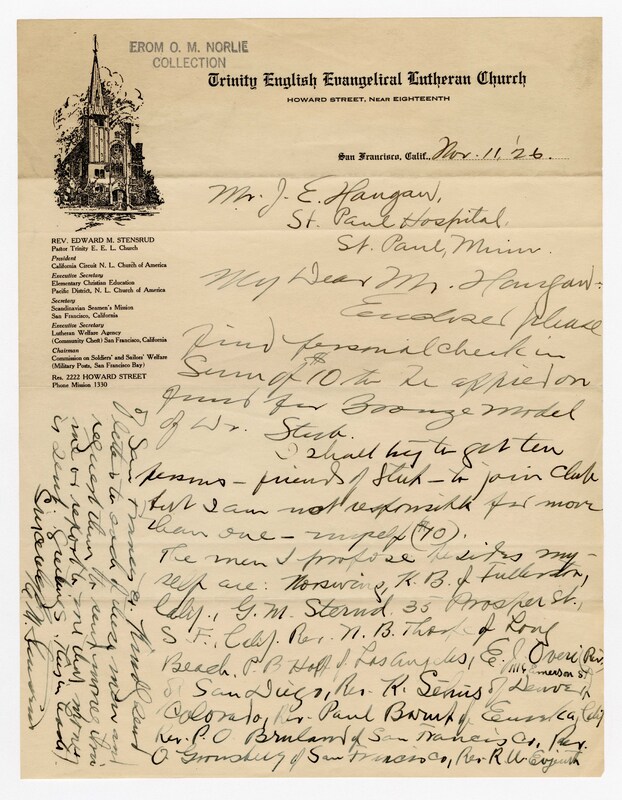 EROM O. M. NORLIE
COLLECTION
Trinity English Evangelical Lutheran Church
HOWARD STREET, NEAR EIGHTEENTH
San Francisco, Calif., Nov. 11, '26.
REV. EDWARD M. STENSRUD
Pastor Trinity E. E. L. Church
President
California Circuit N. L. Church of America
Executive Secretary
Elementary Christian Education
Pacific District, N. L. Church of America
Secretary
Scandinavian Seamen's Mission
San Francisco, California
Executive Secretary
Lutheran Welfare Agency
(Community Chest) San Francisco, California
Chairman
Commission on Soldiers' and Sailors' Welfare
(Military Posts, San Francisco Bay)
Res. 2222 HOWARD STREET
Phone Mission 1330
Mr. J. E. Haugan,
St. Paul Hospital,
St. Paul, Minn.
My Dear Mr. Haugan:-
Enclosed please
find personal check in
Sum of $10 to be applied on
fund for Bronze model
of Dr. Stub.
I shall try to get ten
persons - friends of Stub - to join Club
but I am not responsible for more
than one - myself ($10).
The men I propose besides my-
self are: K. B. of Fullerton,
Calif., G. M. 35 Prosper St.,
S. F., Calif. Rev. N. B. Thorpe of Long
Beach, P. B. Hoff of Los Angeles, E. J. Rev.
Emerson St
San Diego, Rev. K. of Denver
Colorado, Rev. Paul of Eureka, Calif
Rev. P. O. Bruland of San Francisco, Rev.
O. Gronsberg of San Francisco, Rev. R. U.
of San Francisco. Kindly send
letters to each of these men and
request them to send money direct
in or report to me and money
is sent. Greetings,
Sincerely